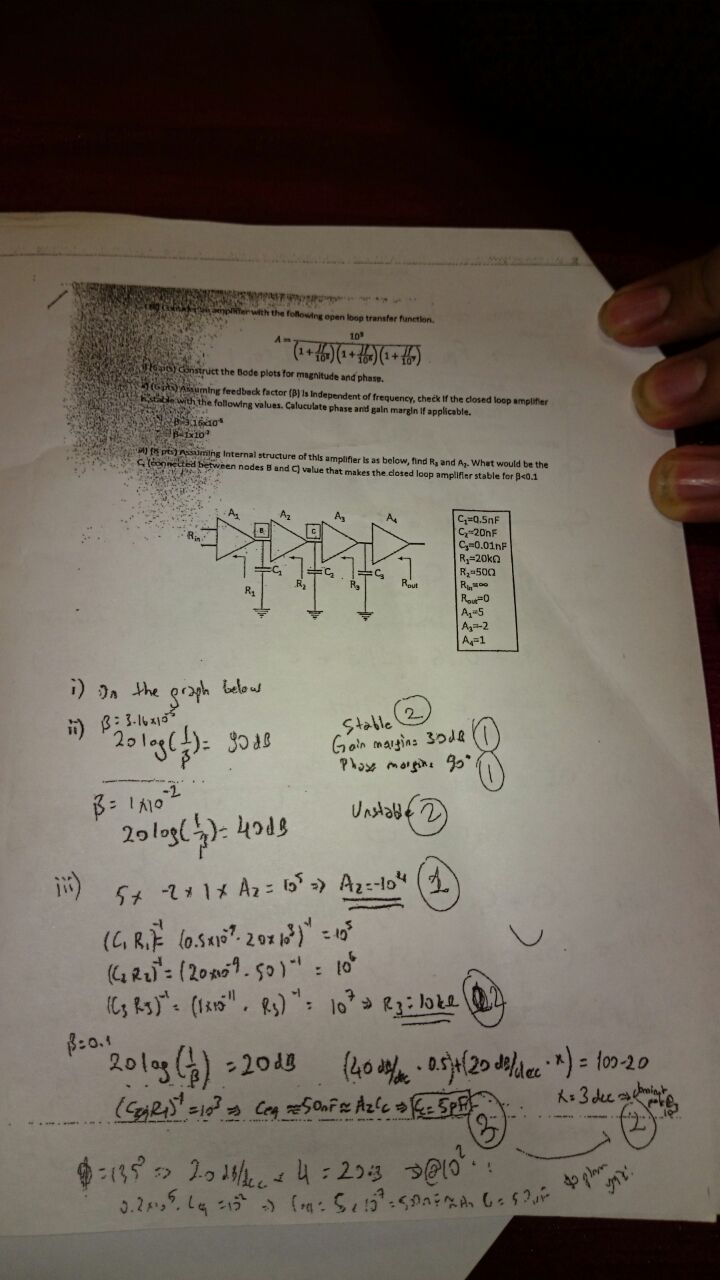 amplifier with the following open loop transfer function.
A= 10⁵
(1+jf/10⁵)(1+jf/10⁶)(1+jf/10⁷)
Construct the Bode plots for magnitude and phase.
(6 pts) Assuming feedback factor (β) is independent of frequency, check if the closed loop amplifier
is stable with the following values. Caluculate phase and gain margin if applicable.
β=3.16x10⁻⁵
β=1x10⁻²
iii) (8 pts) Assuming internal structure of this amplifier is as below, find R₃ and A₂. What would be the
C, (connected between nodes B and C) value that makes the closed loop amplifier stable for β<0.1
A₁ A₂ A₃ A₄
B C
Rin
C₁ C₂ C₃
R₁ R₂ R₃ Rout
C₁=0.5nF
C₂=20nF
C₃=0.01nF
R₁=20kΩ
R₂=50Ω
Rin=∞
Rout=0
A₁=5
A₃=-2
A₄=1
i) In the graph below
ii) β=3.16x10⁻⁵
20log(1/β)= 90dB
Stable 2
Gain margin= 30dB 1
Phase margin= 90° 1
β= 1x10⁻²
20log(1/β)= 40dB
Unstable 2
iii) 5x -2x1x A2 = 10⁵ => A2=-10⁴ 1
(C₁R₁)⁻¹= (0.5x10⁻⁹.20x10³)⁻¹ =10⁵
(C₂R₂)⁻¹=(20x10⁻⁹.50)⁻¹ = 10⁶
(C₃R₃)⁻¹= (1x10⁻¹¹.R₃)⁻¹= 10⁷ => R3=10kΩ 2
β=0.1
20log(1/β)=20dB (40dB/dec.0.5)+(20dB/dec.x) = 100-20
x=3dec =>
(CeqR₁)⁻¹=10³ => Ceq≈50nF≈A2Cc => Cc=5pF 3
2
=135° => 20dB/dec x 4 = 20